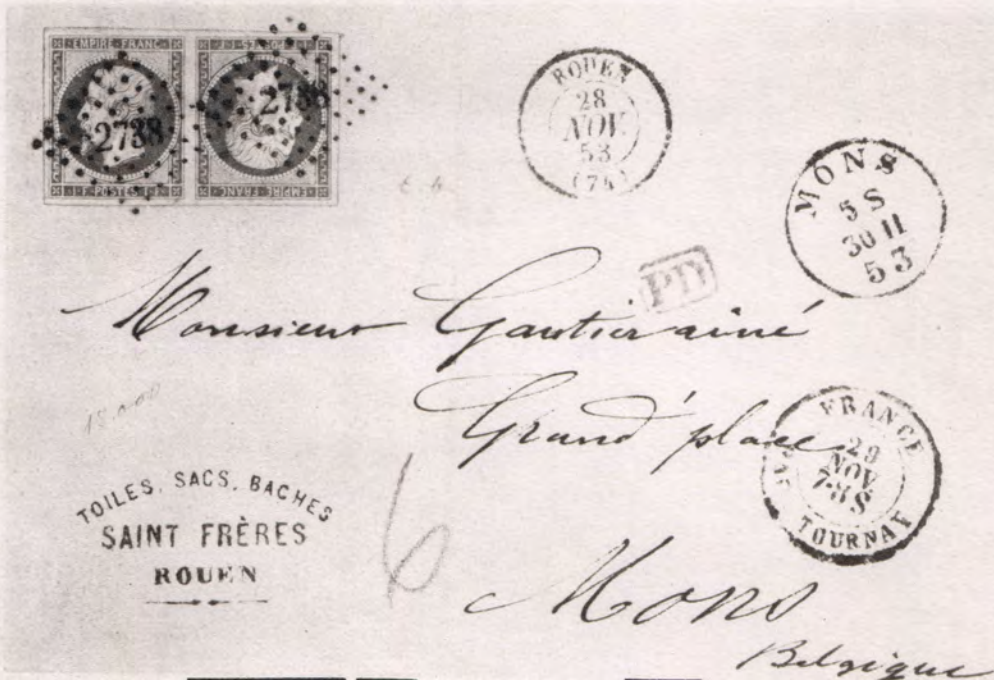 EMPIRE FRANC
POSTES
2738
POSTES
EMPIRE FRANC
2738
ROUEN
28
NOV.
53
(74)
MONS
5 S
30 11
53
PD
Monsieur Gautier ainé
Grand' place
FRANCE
29
NOV.
7-8 S
TOURNAY
TOILES, SACS, BACHES
SAINT FRÈRES
ROUEN
6
Mons
Belgique